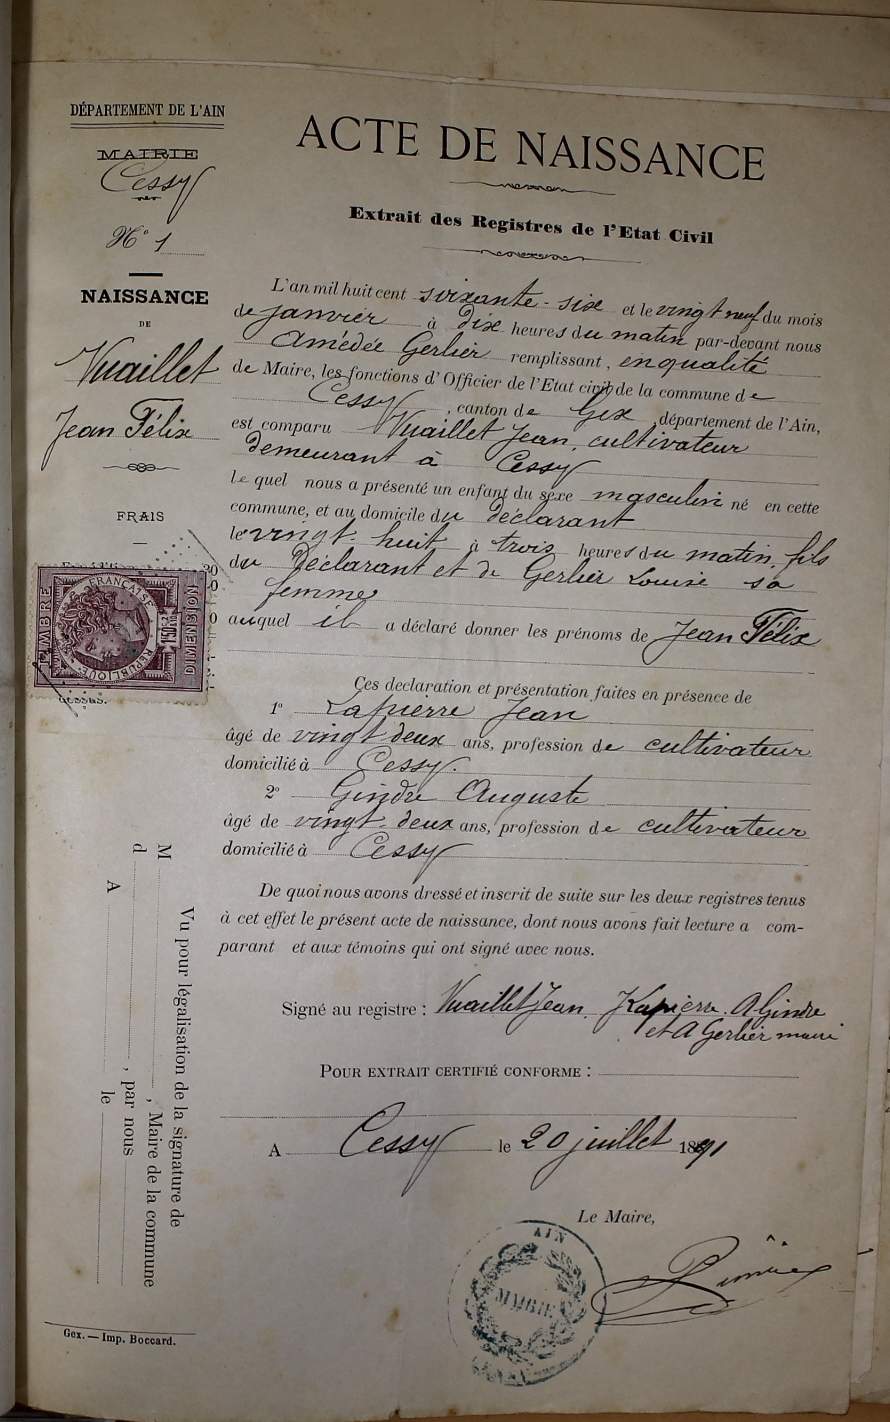 DÉPARTEMENT DE L'AIN
MAIRIE
Cessy
N° 1
NAISSANCE
DE
Vuaillet
Jean Félix
FRAIS
TIMBRE
DIMENSION
RÉPUBLIQUE
FRANÇAISE
dessus.
ACTE DE NAISSANCE
Extrait des Registres de l'Etat Civil
L'an mil huit cent soixante-six et le vingt neuf du mois
de janvier à dix heures du matin par-devant nous
Amédée Gerlier remplissant, en qualité
de Maire, les fonctions d'Officier de l'Etat civil de la commune de
Cessy, canton de Gex, département de l'Ain,
est comparu Vuaillet Jean, cultivateur
demeurant à Cessy
lequel nous a présenté un enfant du sexe masculin né en cette
commune, et au domicile du déclarant
le vingt-huit à trois heures du matin, fils
du déclarant et de Gerlier Louise sa
femme
auquel il a déclaré donner les prénoms de Jean Félix
Ces declaration et présentation faites en présence de
1° Lapierre Jean
âgé de vingt deux ans, profession de cultivateur
domicilié à Cessy.
2° Gindre Auguste
âgé de vingt-deux ans, profession de cultivateur
domicilié à Cessy
De quoi nous avons dressé et inscrit de suite sur les deux registres tenus
à cet effet le présent acte de naissance, dont nous avons fait lecture a com-
parant et aux témoins qui ont signé avec nous.
Signé au registre : Vuaillet Jean, Lapierre. A Gindre
et A Gerlier maire
POUR EXTRAIT CERTIFIÉ CONFORME :
A Cessy le 20 juillet 1891
Le Maire,
AIN
MAIRIE
Vu pour légalisation de la signature de
M , Maire de la commune
d , par nous
A le
Gex. — Imp. Boccard.